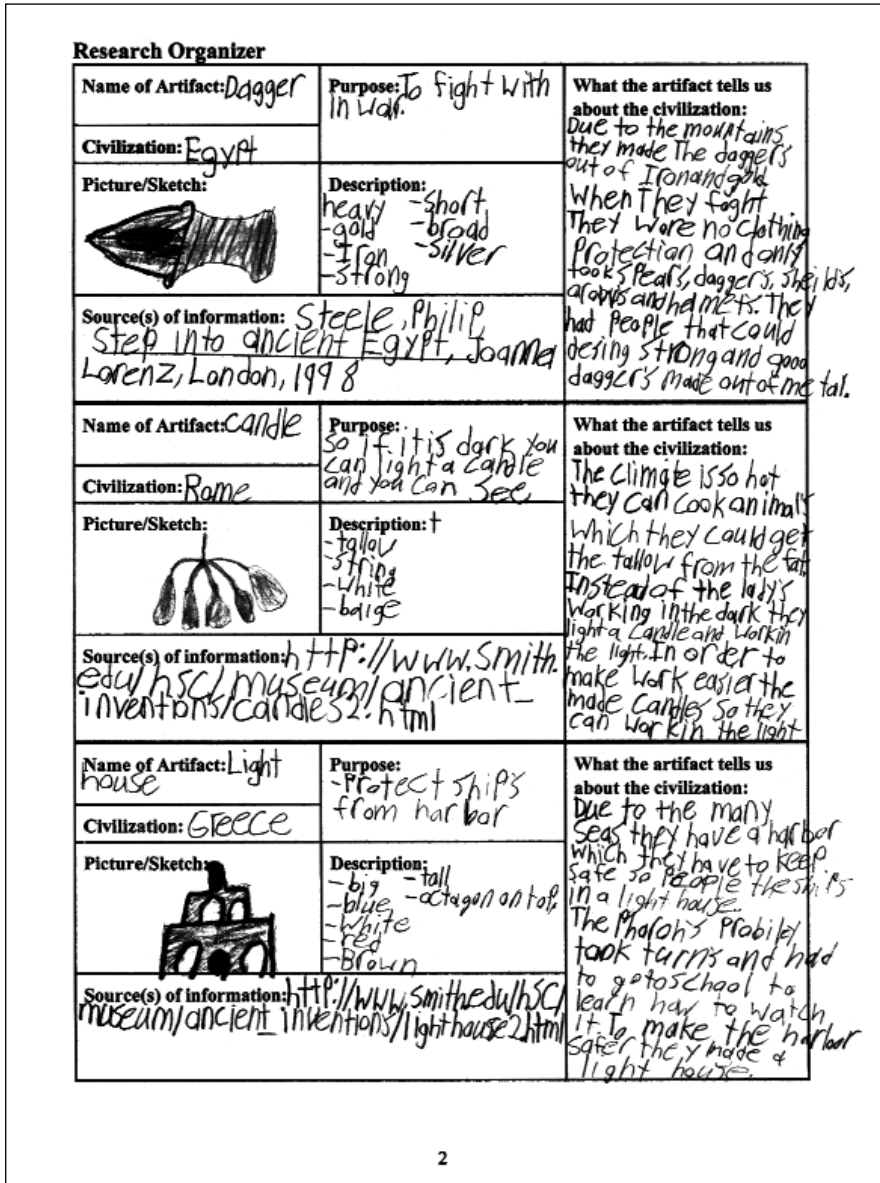 Research Organizer
Name of Artifact: Dagger
Civilization: Egypt
Purpose: To fight with
in war.
Picture/Sketch:
Description:
heavy -short
-gold -broad
-Iron -Silver
-strong
Source(s) of information: Steele, Philip,
Step into ancient Egypt, Joanna
Lorenz, London, 1998
What the artifact tells us
about the civilization:
Due to the mountains
they made The daggers
out of Iron and gold.
When They foght
They wore no clothing
Protection and only
took spears, daggers, sheilds,
arows and helmets. They
had People that could
desing strong and good
daggers made out of metal.
Name of Artifact: Candle
Civilization: Rome
Purpose:
So if it is dark you
can light a candle
and you can see.
Picture/Sketch:
Description: t
-tallow
-string
-white
-baige
Source(s) of information: http://www.smith.
edu/hsc/museum/ancient_
inventions/candles2.html
What the artifact tells us
about the civilization:
The climate is so hot
they can cook animals
which they could get
the tallow from the fat.
Instead of the lady's
working in the dark they
light a candle and work in
the light. In order to
make work easier the
made candles so they
can work in the light
Name of Artifact: Light
house
Civilization: Greece
Purpose:
-Protect ships
from harbor
Picture/Sketch:
Description:
-big -tall
-blue -octagon on top,
-white
-red
-Brown
Source(s) of information: http://www.smithedu/hsc/
museum/ancient_inventions/lighthouse2html
What the artifact tells us
about the civilization:
Due to the many
seas they have a harbor
which they have to keep
safe so people the ships
in a light house.
The Pharoh's Probiley
took turns and had
to go to school to
learn how to watch
it. To make the harbor
safer they made a
light house.
2